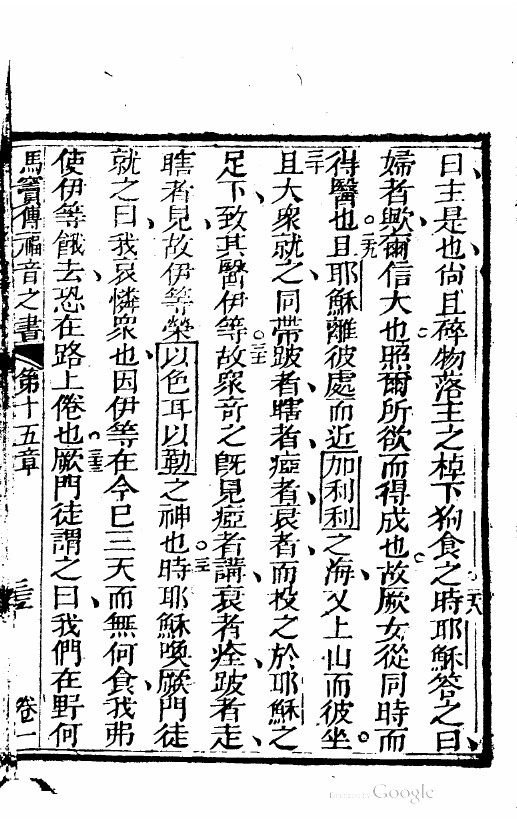 曰主是也尙且碎物落主之棹下狗食之時耶穌答之曰
二八
婦者歟爾信大也照爾所欲而得成也故厥女從同時而
得醫也且耶穌離彼處而近加利利之海又上山而彼坐
二九
且大衆就之同帶跛者瞎者瘂者衰者而投之於耶穌之
三十
足下致其醫伊等故衆奇之旣見瘂者講衰者痊跛者走
三一
瞎者見故伊等榮以色耳以勒之神也時耶穌喚厥門徒
三二
就之曰我哀憐衆也因伊等在今已三天而無何食我弗
使伊等餓去恐在路上倦也厥門徒謂之曰我們在野何
三三
馬竇傳福音之書 第十五章 卷一
Digitized by Google